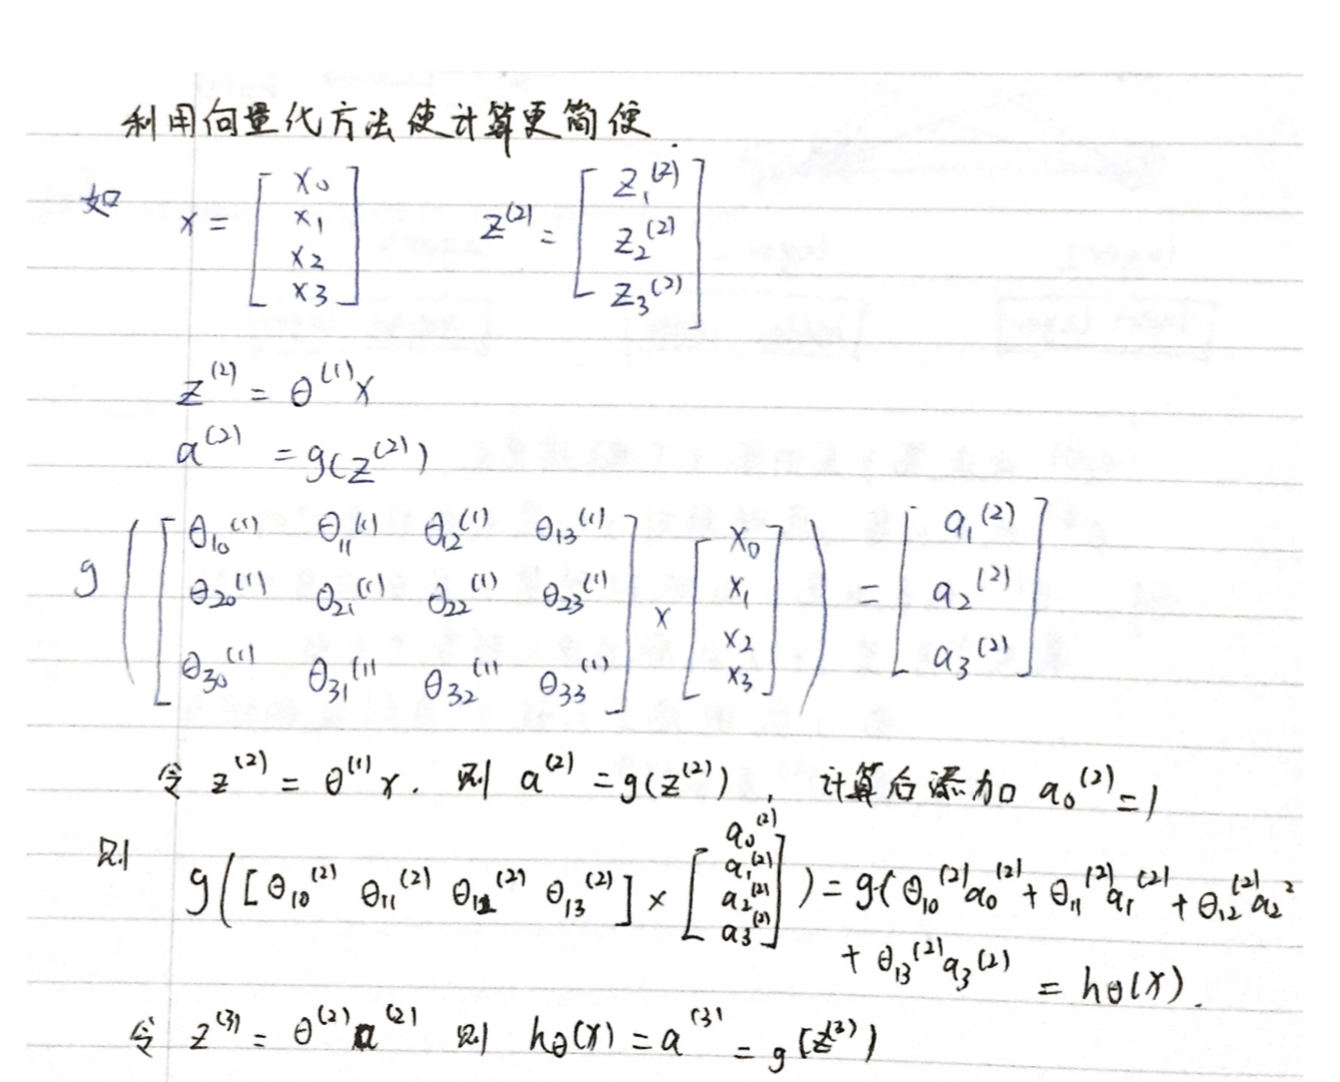 利用向量化方法使计算更简便
如 x = [ x₀ x₁ x₂ x₃ ] z⁽²⁾ = [ z₁⁽²⁾ z₂⁽²⁾ z₃⁽²⁾ ]
z⁽²⁾ = θ⁽¹⁾x
a⁽²⁾ = g(z⁽²⁾)
g ( [ θ₁₀⁽¹⁾ θ₁₁⁽¹⁾ θ₁₂⁽¹⁾ θ₁₃⁽¹⁾
θ₂₀⁽¹⁾ θ₂₁⁽¹⁾ θ₂₂⁽¹⁾ θ₂₃⁽¹⁾
θ₃₀⁽¹⁾ θ₃₁⁽¹⁾ θ₃₂⁽¹⁾ θ₃₃⁽¹⁾ ] × [ x₀ x₁ x₂ x₃ ] ) = [ a₁⁽²⁾ a₂⁽²⁾ a₃⁽²⁾ ]
令 z⁽²⁾ = θ⁽¹⁾x. 则 a⁽²⁾ = g(z⁽²⁾), 计算后添加 a₀⁽²⁾ = 1
则 g( [ θ₁₀⁽²⁾ θ₁₁⁽²⁾ θ₁₂⁽²⁾ θ₁₃⁽²⁾ ] × [ a₀⁽²⁾ a₁⁽²⁾ a₂⁽²⁾ a₃⁽²⁾ ] ) = g( θ₁₀⁽²⁾a₀⁽²⁾ + θ₁₁⁽²⁾a₁⁽²⁾ + θ₁₂⁽²⁾a₂²
+ θ₁₃⁽²⁾a₃⁽²⁾ = hθ(x).
令 z⁽³⁾ = θ⁽²⁾a⁽²⁾ 则 hθ(x) = a⁽³⁾ = g(z⁽³⁾)